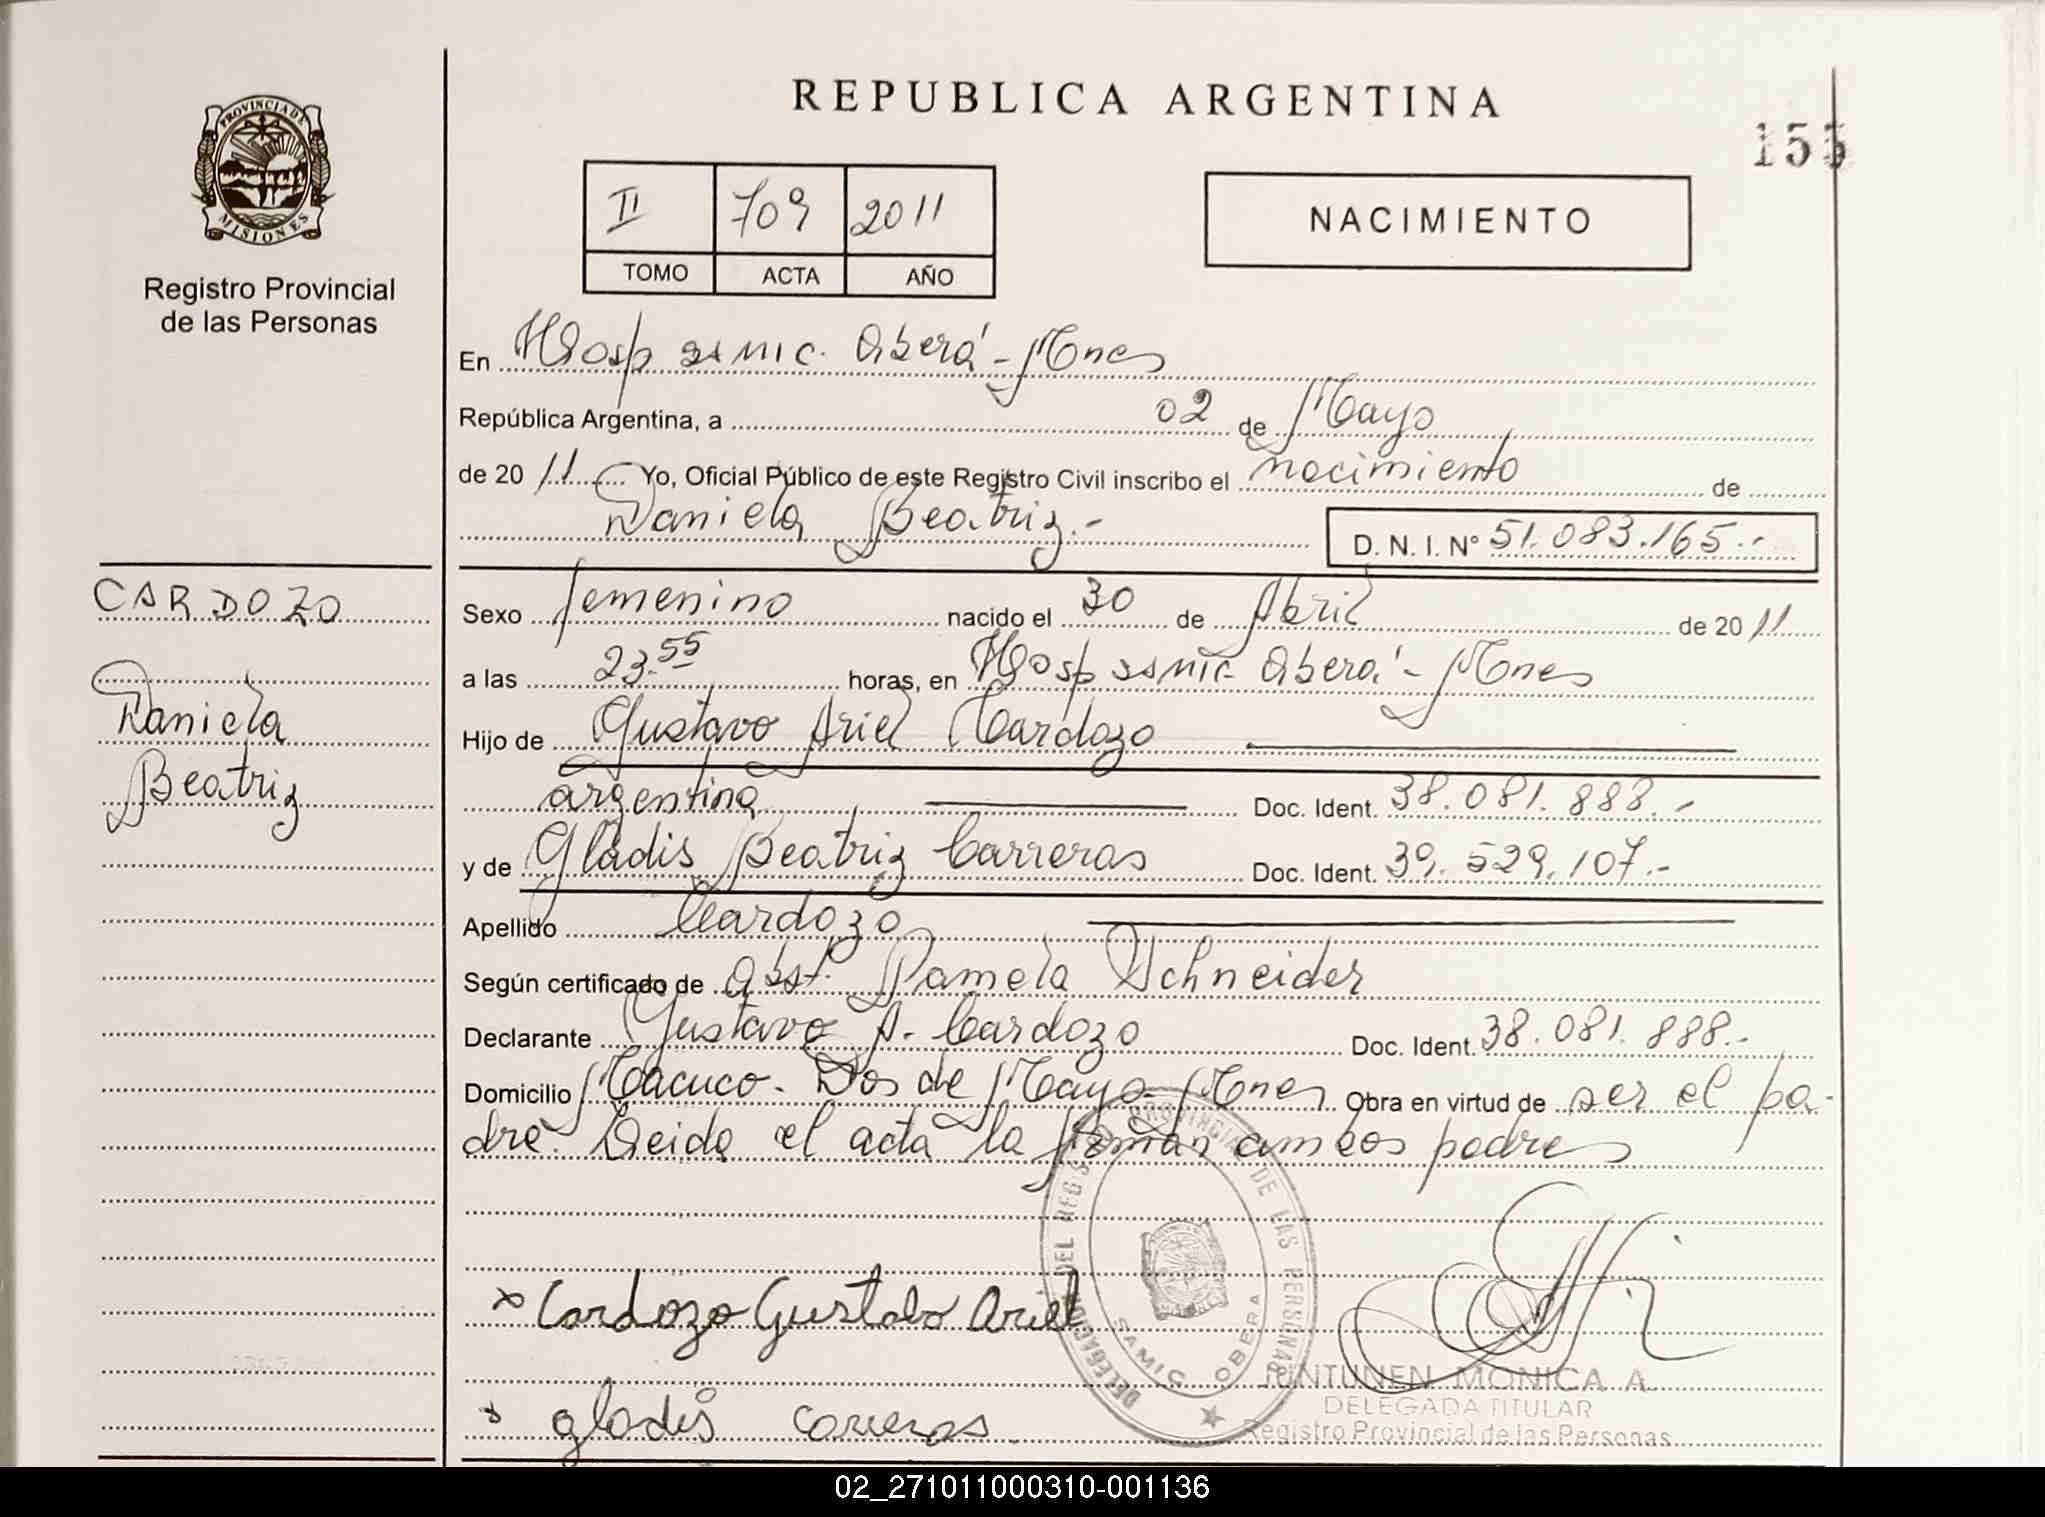 REPUBLICA ARGENTINA
155
PROVINCIA DE MISIONES
Registro Provincial
de las Personas
II 709 2011
TOMO ACTA AÑO
NACIMIENTO
En Hosp SAMIC. Oberá - Mnes
República Argentina, a 02 de Mayo
de 20 11 Yo, Oficial Público de este Registro Civil inscribo el nacimiento de
Daniela Beatriz.- D. N. I. N° 51.083.165.-
CARDOZO
Daniela
Beatriz
Sexo femenino nacido el 30 de Abril de 20 11
a las 23.55 horas, en Hosp SAMIC Oberá - Mnes
Hijo de Gustavo Ariel Cardozo
argentina Doc. Ident. 38.081.888.-
y de Gladis Beatriz Carreras Doc. Ident. 39.529.107.-
Apellido Cardozo
Según certificado de Obst. Pamela Schneider
Declarante Gustavo A. Cardozo Doc. Ident. 38.081.888.-
Domicilio Macuco - Dos de Mayo - Mnes Obra en virtud de ser el pa-
dre. Leida el acta la firman ambos padres
DELEGACION DEL REGISTRO PROVINCIAL DE LAS PERSONAS
SAMIC OBERA
x Cardozo Gustabo Ariel
x gladis carreras
MONICA A.
DELEGADA TITULAR
Registro Provincial de las Personas
02_271011000310-001136